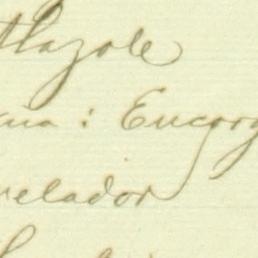 tlazole
ma: Encarg
velador